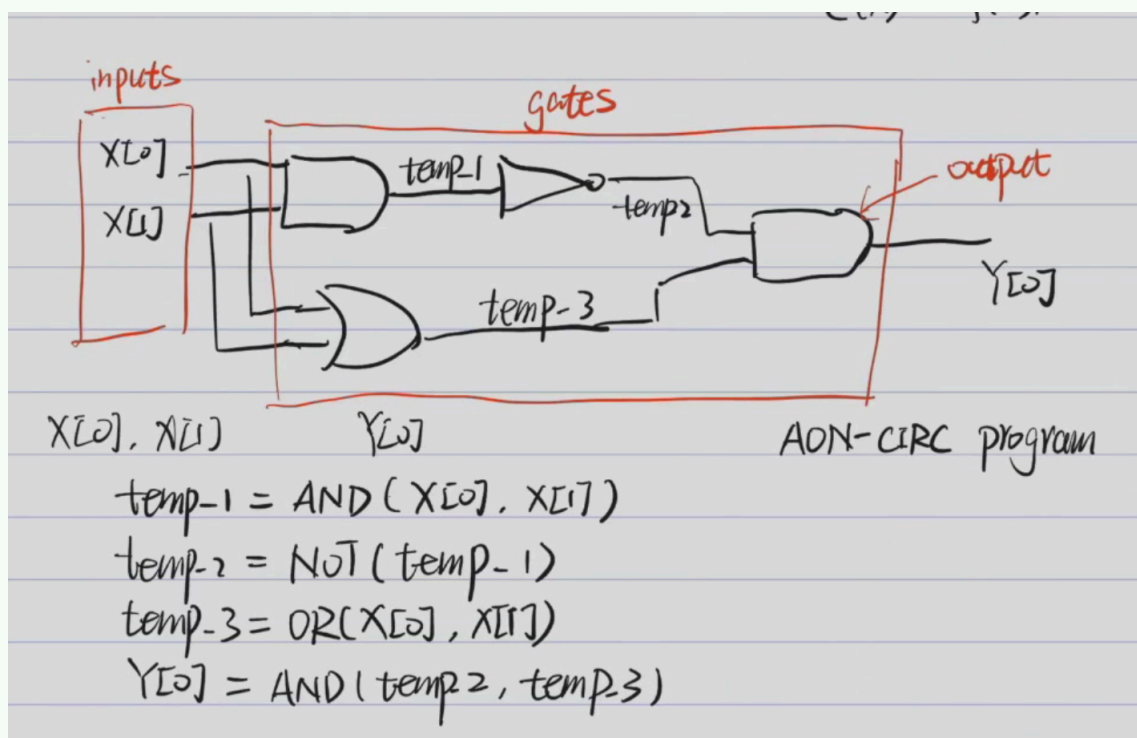 inputs
gates
X[0]
temp-1
output
X[1]
temp2
Y[0]
temp-3
X[0], X[1] Y[0] AON-CIRC program
temp-1 = AND(X[0], X[1])
temp-2 = NOT(temp-1)
temp-3 = OR(X[0], X[1])
Y[0] = AND(temp2, temp-3)